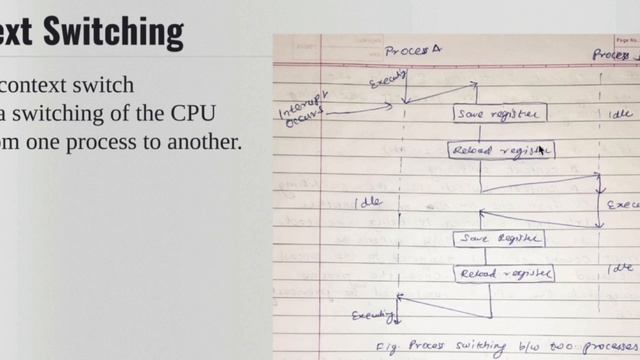 ext Switching
context switch
a switching of the CPU
om one process to another.
Page No.
Process A
Process
Executing
Interrupt
Occurs
Save register
Idle
Reload register
Idle
Execu
Save Register
Reload register
Idle
Executing
Fig. Process switching b/w two processes